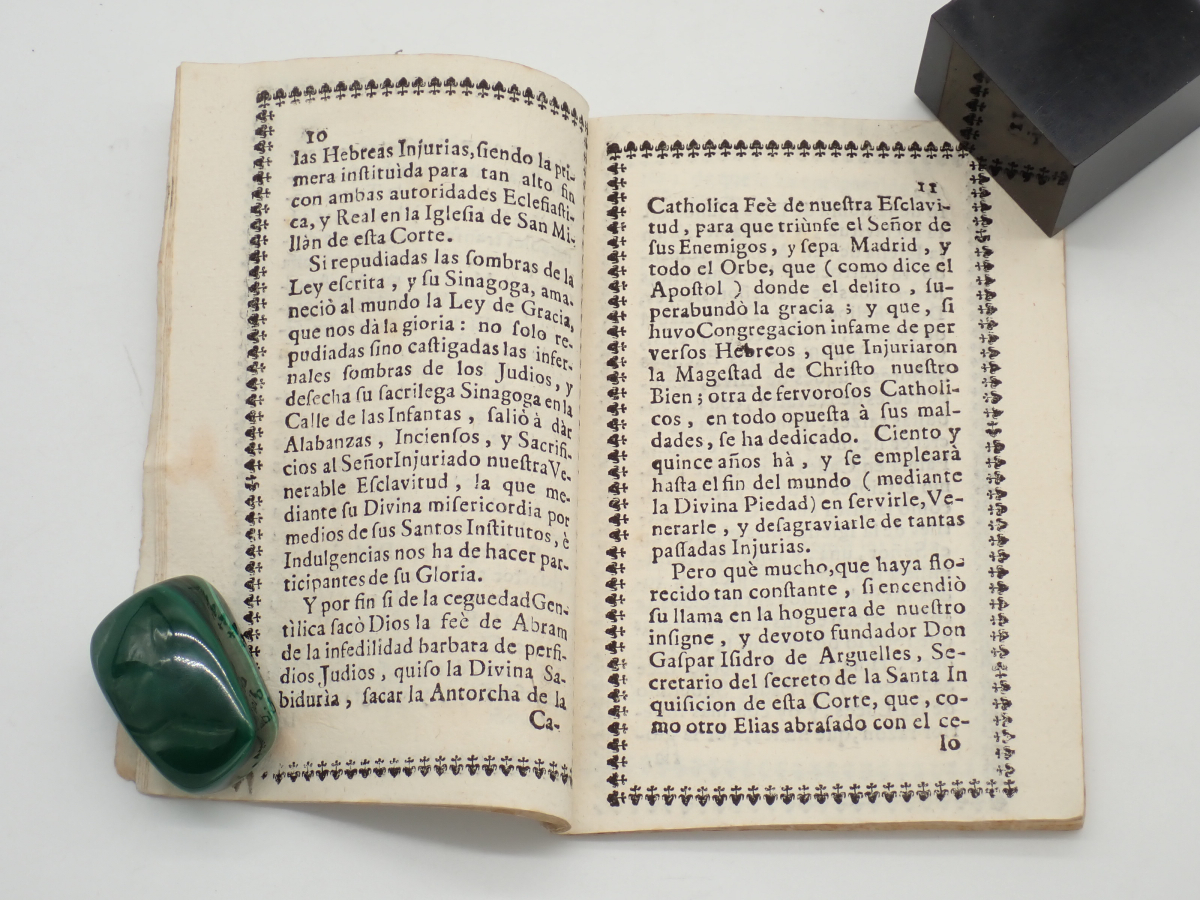 10
las Hebreas Injurias, ſiendo la pri-
mera inſtituìda para tan alto fin
con ambas autoridades Ecleſiaſti-
ca, y Real en la Igleſia de San Mi-
llàn de eſta Corte.
Si repudiadas las ſombras de la
Ley eſcrita, y ſu Sinagoga, ama-
neciò al mundo la Ley de Gracia,
que nos dà la gioria: no ſolo re-
pudiadas ſino caſtigadas las infer-
nales ſombras de los Judios, y
deſecha ſu ſacrilega Sinagoga en la
Calle de las Infantas, ſaliò à dàr
Alabanzas, Incienſos, y Sacrifi-
cios al Señor Injuriado nueſtra Ve-
nerable Eſclavitud, la que me-
diante ſu Divina miſericordia por
medios de ſus Santos Inſtitutos, è
Indulgencias nos ha de hacer par-
ticipantes de ſu Gloria.
Y por fin ſi de la ceguedad Gen-
tìlica ſacò Dios la feè de Abram
de la infedilidad barbara de perfi-
dios Judios, quiſo la Divina Sa-
bidurìa, ſacar la Antorcha de la
Ca-
11
Catholica Feè de nueſtra Eſclavi-
tud, para que triùnfe el Señor de
ſus Enemigos, y ſepa Madrid, y
todo el Orbe, que (como dice el
Apoſtol) donde el delito, ſu-
perabundò la gracia; y que, ſi
huvo Congregacion infame de per
verſos Hebreos, que Injuriaron
la Mageſtad de Chriſto nueſtro
Bien; otra de fervoroſos Catholi-
cos, en todo opueſta à ſus mal-
dades, ſe ha dedicado. Ciento y
quince años hà, y ſe emplearà
haſta el fin del mundo (mediante
la Divina Piedad) en ſervirle, Ve-
nerarle, y deſagraviarle de tantas
paſſadas Injurias.
Pero què mucho, que haya flo-
recido tan conſtante, ſi encendiò
ſu llama en la hoguera de nueſtro
inſigne, y devoto fundador Don
Gaſpar Iſidro de Arguelles, Se-
cretario del ſecreto de la Santa In
quiſicion de eſta Corte, que, co-
mo otro Elias abraſado con el ce-
lo